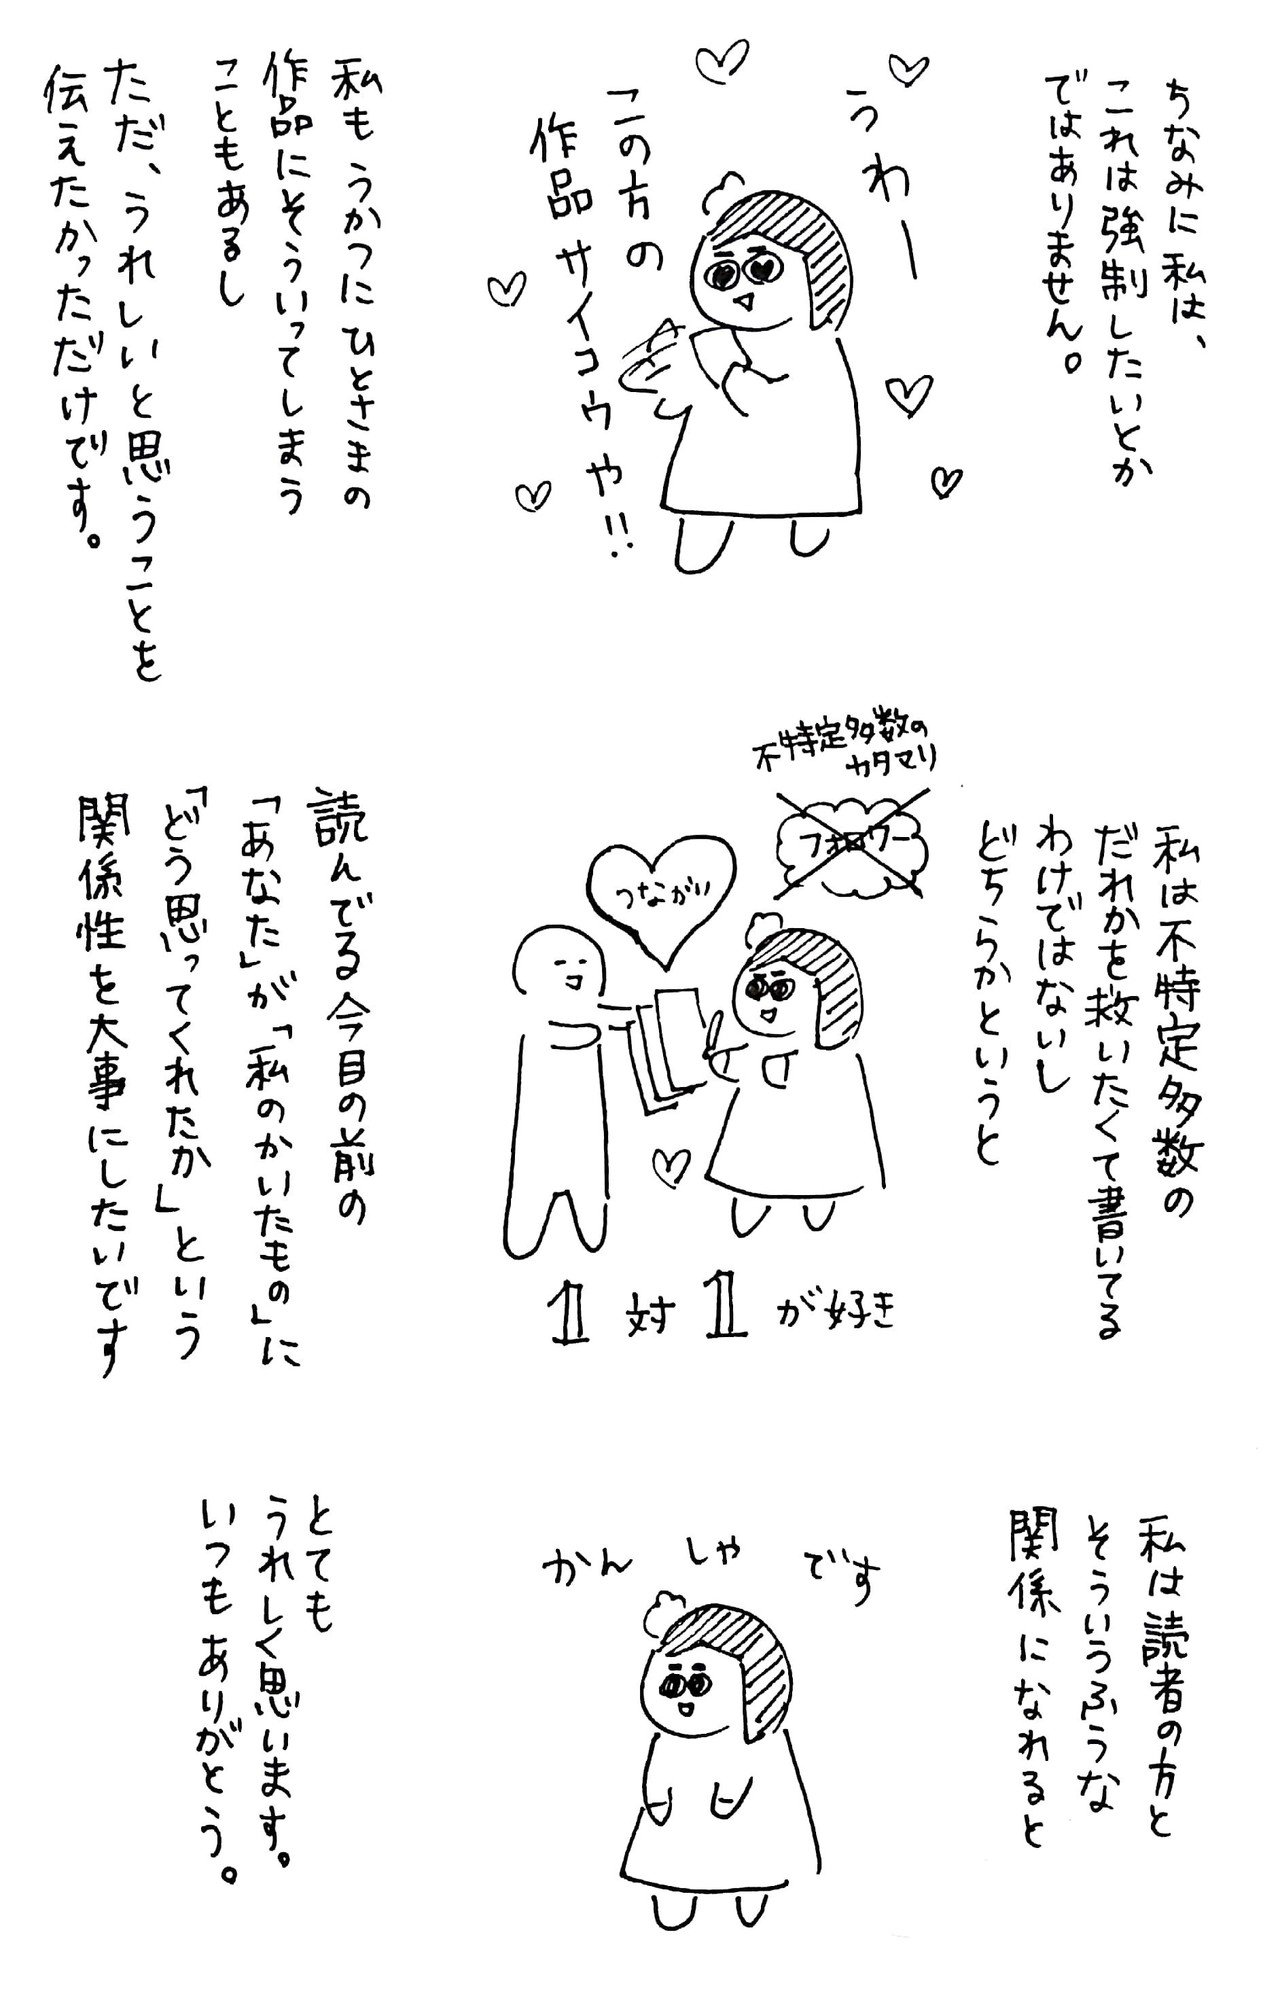 ちなみに私は、
これは強制したいとか
ではありません。
うわー
この方の
作品サイコウや!!
私もうかつにひとさまの
作品にそういってしまう
こともあるし
ただ、うれしいと思うことを
伝えたかっただけです。
私は不特定多数の
だれかを救いたくて書いてる
わけではないし
どちらかというと
不特定多数の
カタマリ
フォロワー
つながり
1対1が好き
読んでる今目の前の
「あなた」が「私のかいたもの」に
「どう思ってくれたか」という
関係性を大事にしたいです
私は読者の方と
そういうふうな
関係になれると
かんしゃです
とても
うれしく思います。
いつもありがとう。